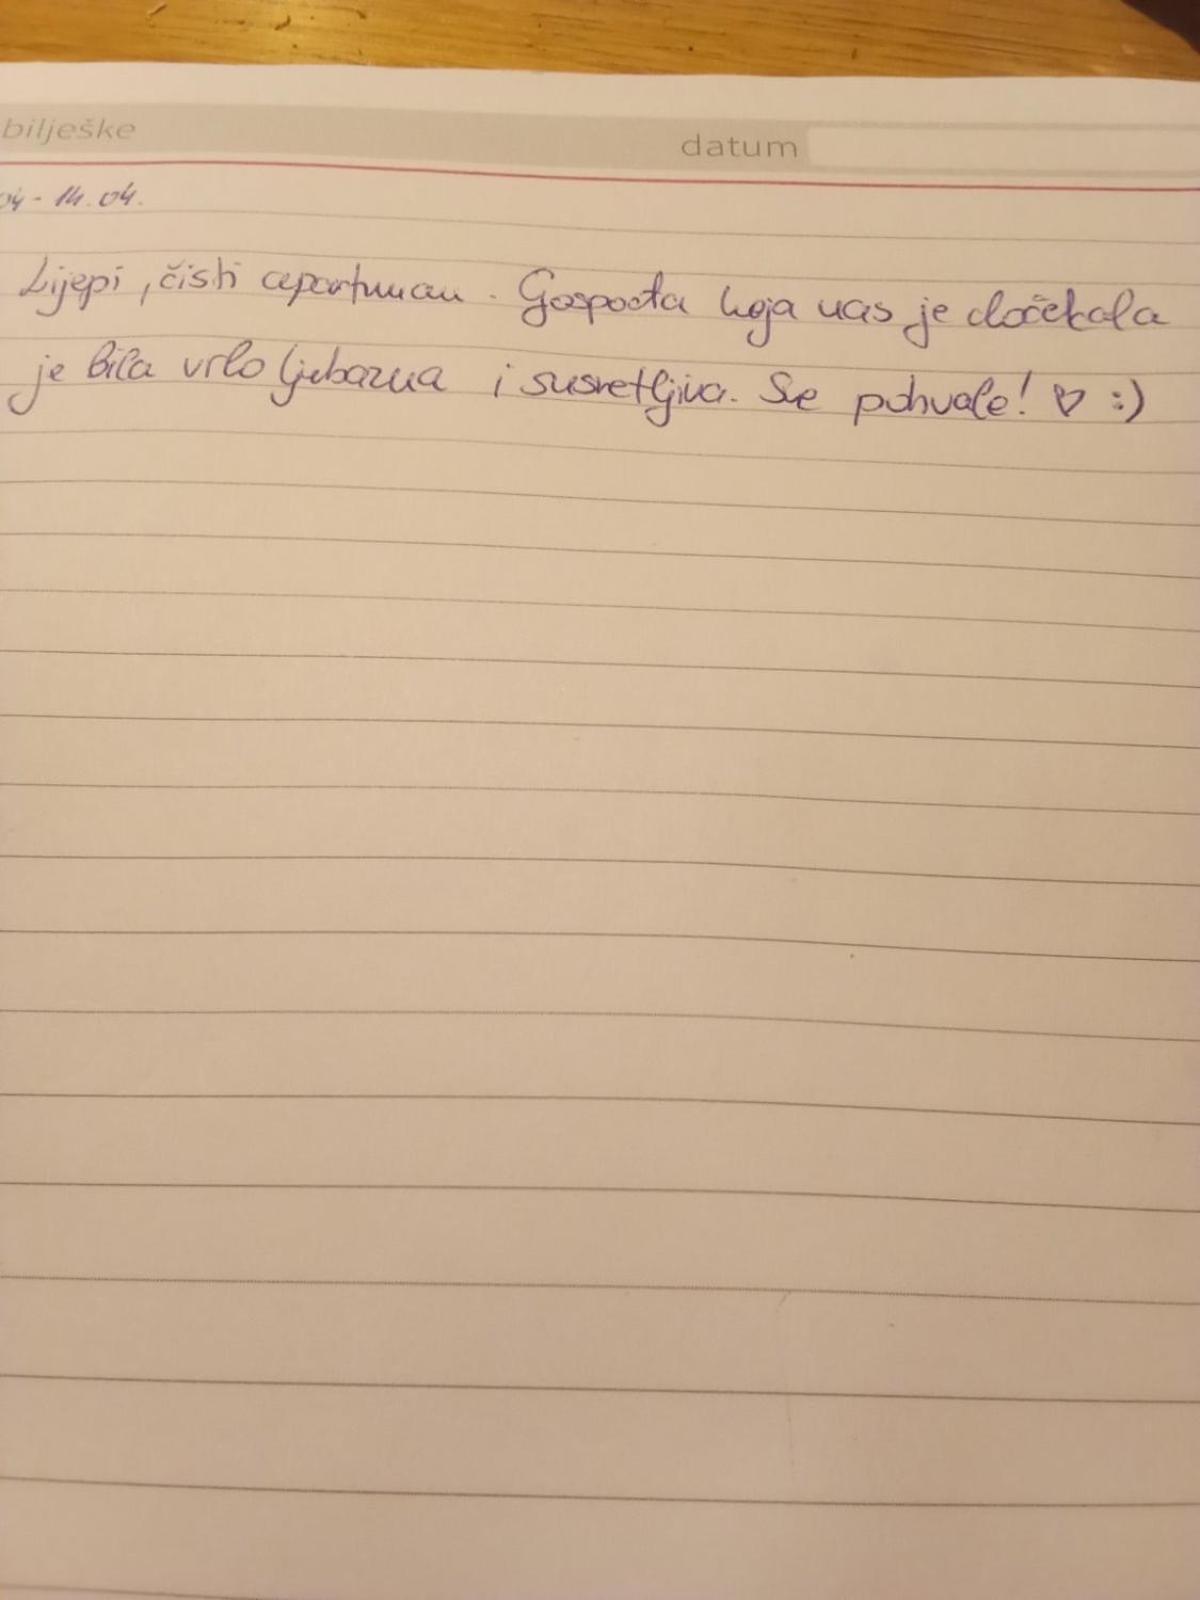 bilješke
datum
04 - 14. 04.
Lijepi, čisti apartman. Gospođa koja nas je dočekala
je bila vrlo ljubazna i susretljiva. Sve pohvale! ♡ :)